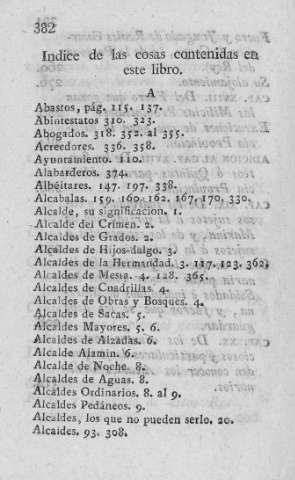 382
Indice de las cosas contenidas en
este libro.
A
Abastos, pág. 115. 137.
Abintestatos 310. 323.
Abogados. 318. 352. al 355.
Acreedores. 336. 358.
Ayuntamiento. 110.
Alabarderos. 374.
Albéitares. 147. 197. 338.
Alcabalas. 159. 160. 162. 167, 170. 330.
Alcalde, su significacion. 1.
Alcalde del Crímen. 2.
Alcaldes de Grados. 2.
Alcaldes de Hijos-dalgo. 3.
Alcaldes de la Hermandad. 3. 117. 123. 362.
Alcaldes de Mesta. 4. 128. 365.
Alcaldes de Quadrillas. 4.
Alcaldes de Obras y Bosques. 4.
Alcaldes de Sacas. 5.
Alcaldes Mayores. 5. 6.
Alcaldes de Alzadas. 6.
Alcalde Alamin. 6.
Alcalde de Noche. 8.
Alcaldes de Aguas. 8.
Alcaldes Ordinarios. 8. al 9.
Alcaldes Pedáneos. 9.
Alcaldes, los que no pueden serlo. 20.
Alcaides. 93. 308.